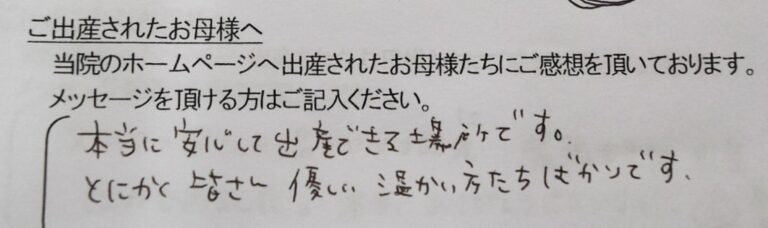 ご出産されたお母様へ
当院のホームページへ出産されたお母様たちにご感想を頂いております。
メッセージを頂ける方はご記入ください。
本当に安心して出産できる場所です。
とにかく皆さん優しい温かい方たちばかりです。